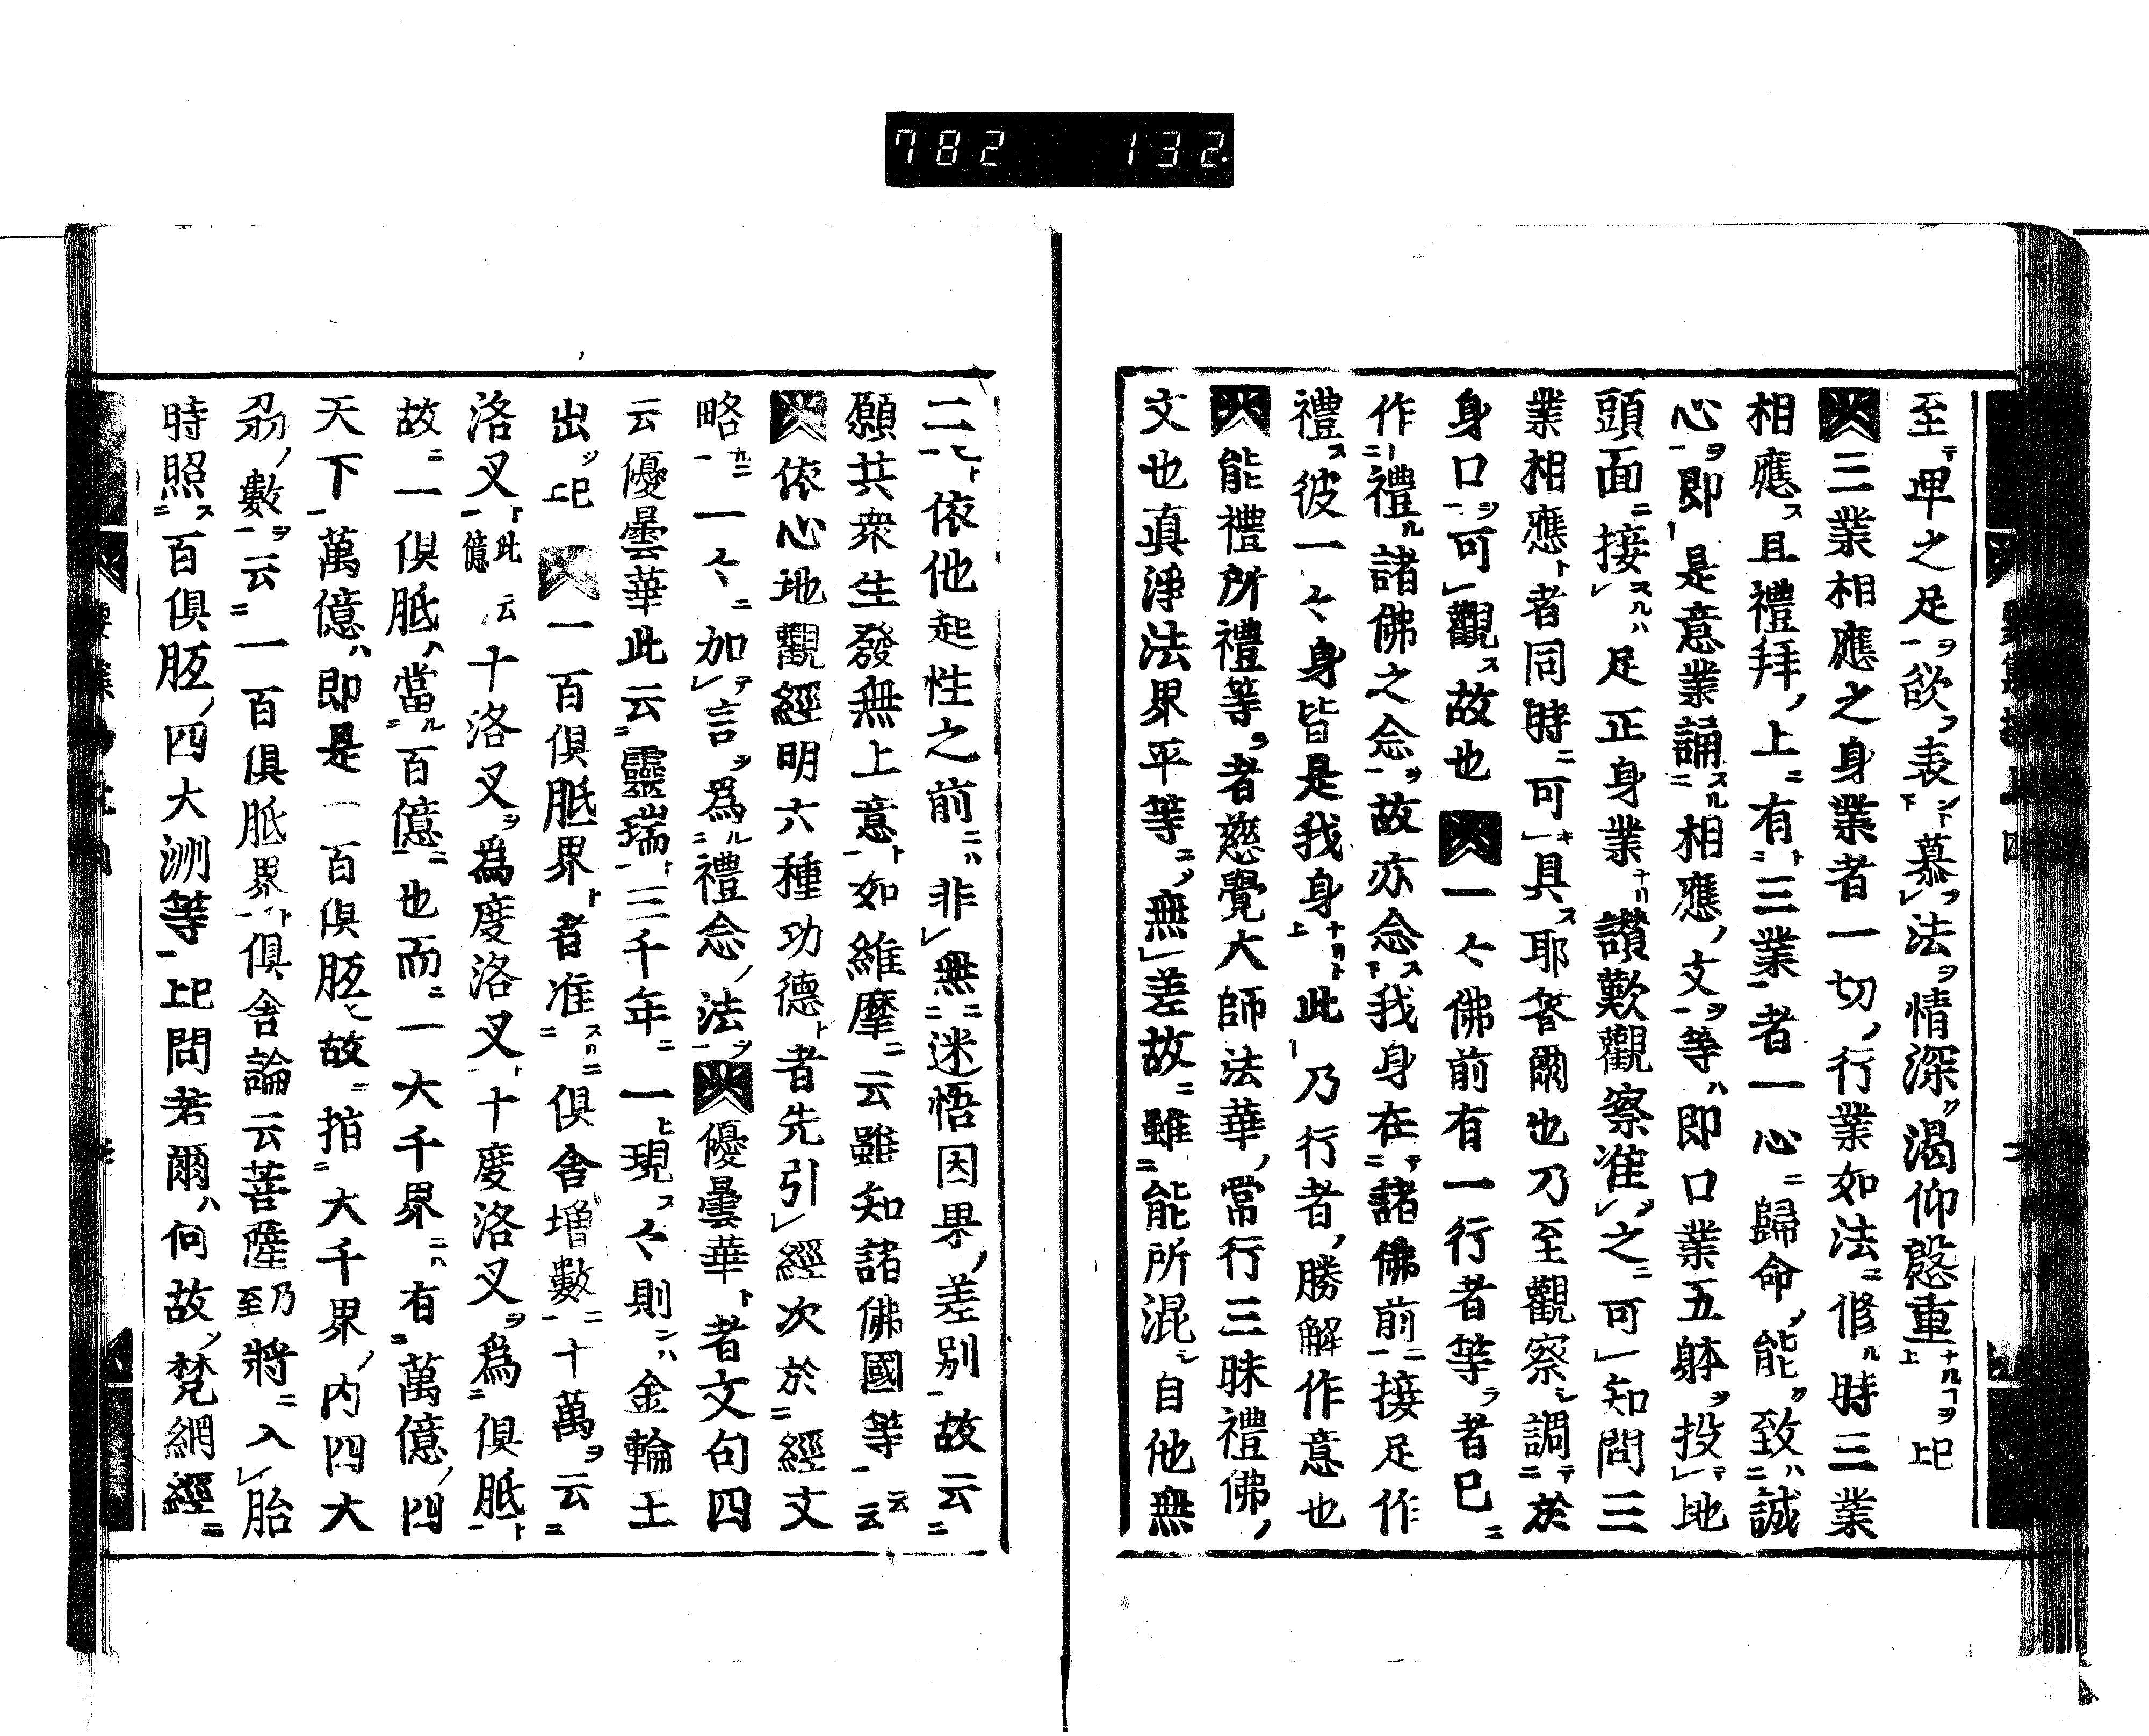 782 132
至卑之足欲表慕法情深渴仰慇重上已
三業相應之身業者一切行業如法修時三業
相應且禮拜上有三業者一心歸命能致誠
心即是意業誦相應文等即口業五躰投地
頭面接足正身業讃歎觀察准之可知問三
業相應者同時可具耶答爾也乃至觀察調於
身口可觀故也 一々佛前有一行者等者已
作禮諸佛之念故亦念我身在諸佛前接足作
禮彼一々身皆是我身此乃行者勝解作意也
能禮所禮等者慈覺大師法華常行三昧禮佛
文也真淨法界平等無差故雖能所混自他無
二依他起性之前非無迷悟因果差別故云
願共衆生發無上意如維摩云雖知諸佛國等云云
依心地觀經明六種功德者先引經次於經文
略一々加言爲禮念法 優曇華者文句四
云優曇華此云靈瑞三千年一現々則金輪王
出上已 一百俱胝界者准俱舍增數十萬云
洛叉此云億十洛叉爲度洛叉十度洛叉爲俱胝
故一俱胝當百億也而一大千界有萬億四
天下萬億即是一百俱胝故指大千界内四大
刕數云一百俱胝界俱舍論云菩薩乃至將入胎
時照百俱胝四大洲等上已問若爾何故梵網經